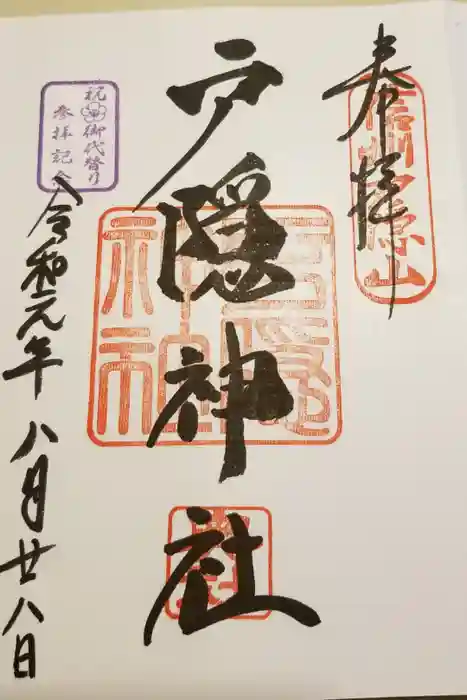 奉拝
信州戸隠山
戸隠神社
戸隠神社
祝 御代替り
参拝記念
令和元年八月廿八日